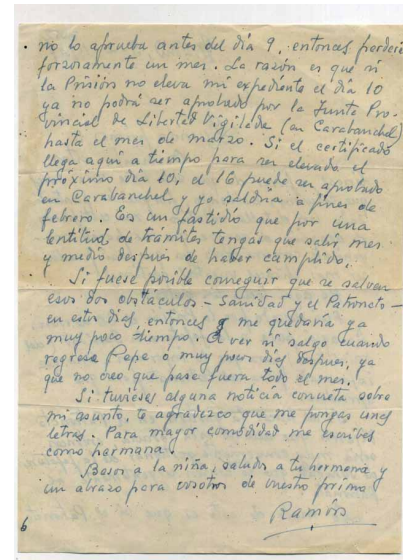 no lo aprueba antes del día 9, entonces perderé
forzosamente un mes. La razón es que si
la Prisión no eleva mi expediente el día 10
ya no podrá ser aprobado por la Junta Pro-
vincial de Libertad Vigilada (en Carabanchel)
hasta el mes de marzo. Si el certificado
llega aquí a tiempo para ser elevado el
próximo día 10, el 16 puede ser aprobado
en Carabanchel y yo saldría a fines de
febrero. Es un fastidio que por una
lentitud de trámites tengas que salir mes
y medio después de haber cumplido.
Si fuese posible conseguir que se salvasen
esos dos obstáculos - Sanidad y el Patronato -
en estos días, entonces me quedaría ya
muy poco tiempo. A ver si salgo cuando
regrese Pepe o muy pocos días después, ya
que no creo que pase fuera todo el mes.
Si tuvieses alguna noticia concreta sobre
mi asunto, te agradezco que me pongas unas
letras. Para mayor comodidad me escribes
como hermana.
Besos a la niña, saludos a tu hermana y
un abrazo para vosotros de vuestro primo
Ramón
6